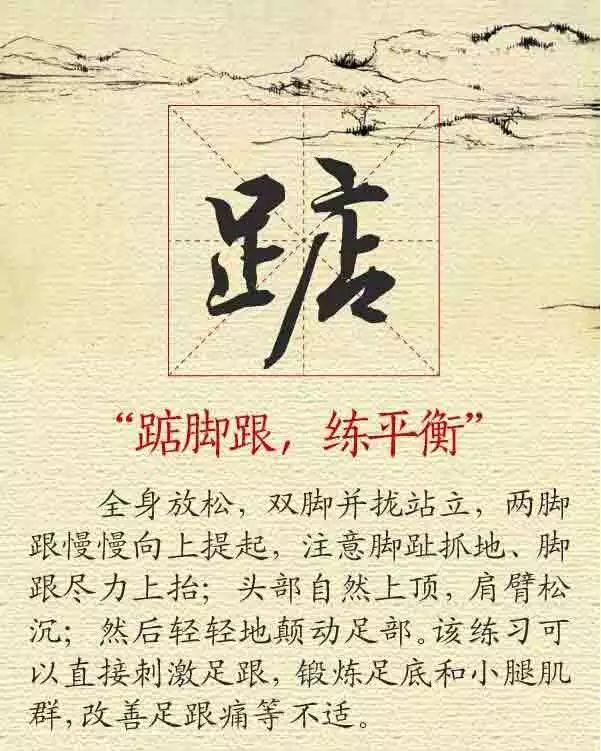 踮
“踮脚跟，练平衡”
全身放松，双脚并拢站立，两脚
跟慢慢向上提起，注意脚趾抓地、脚
跟尽力上抬；头部自然上顶，肩臂松
沉；然后轻轻地颠动足部。该练习可
以直接刺激足跟，锻炼足底和小腿肌
群，改善足跟痛等不适。